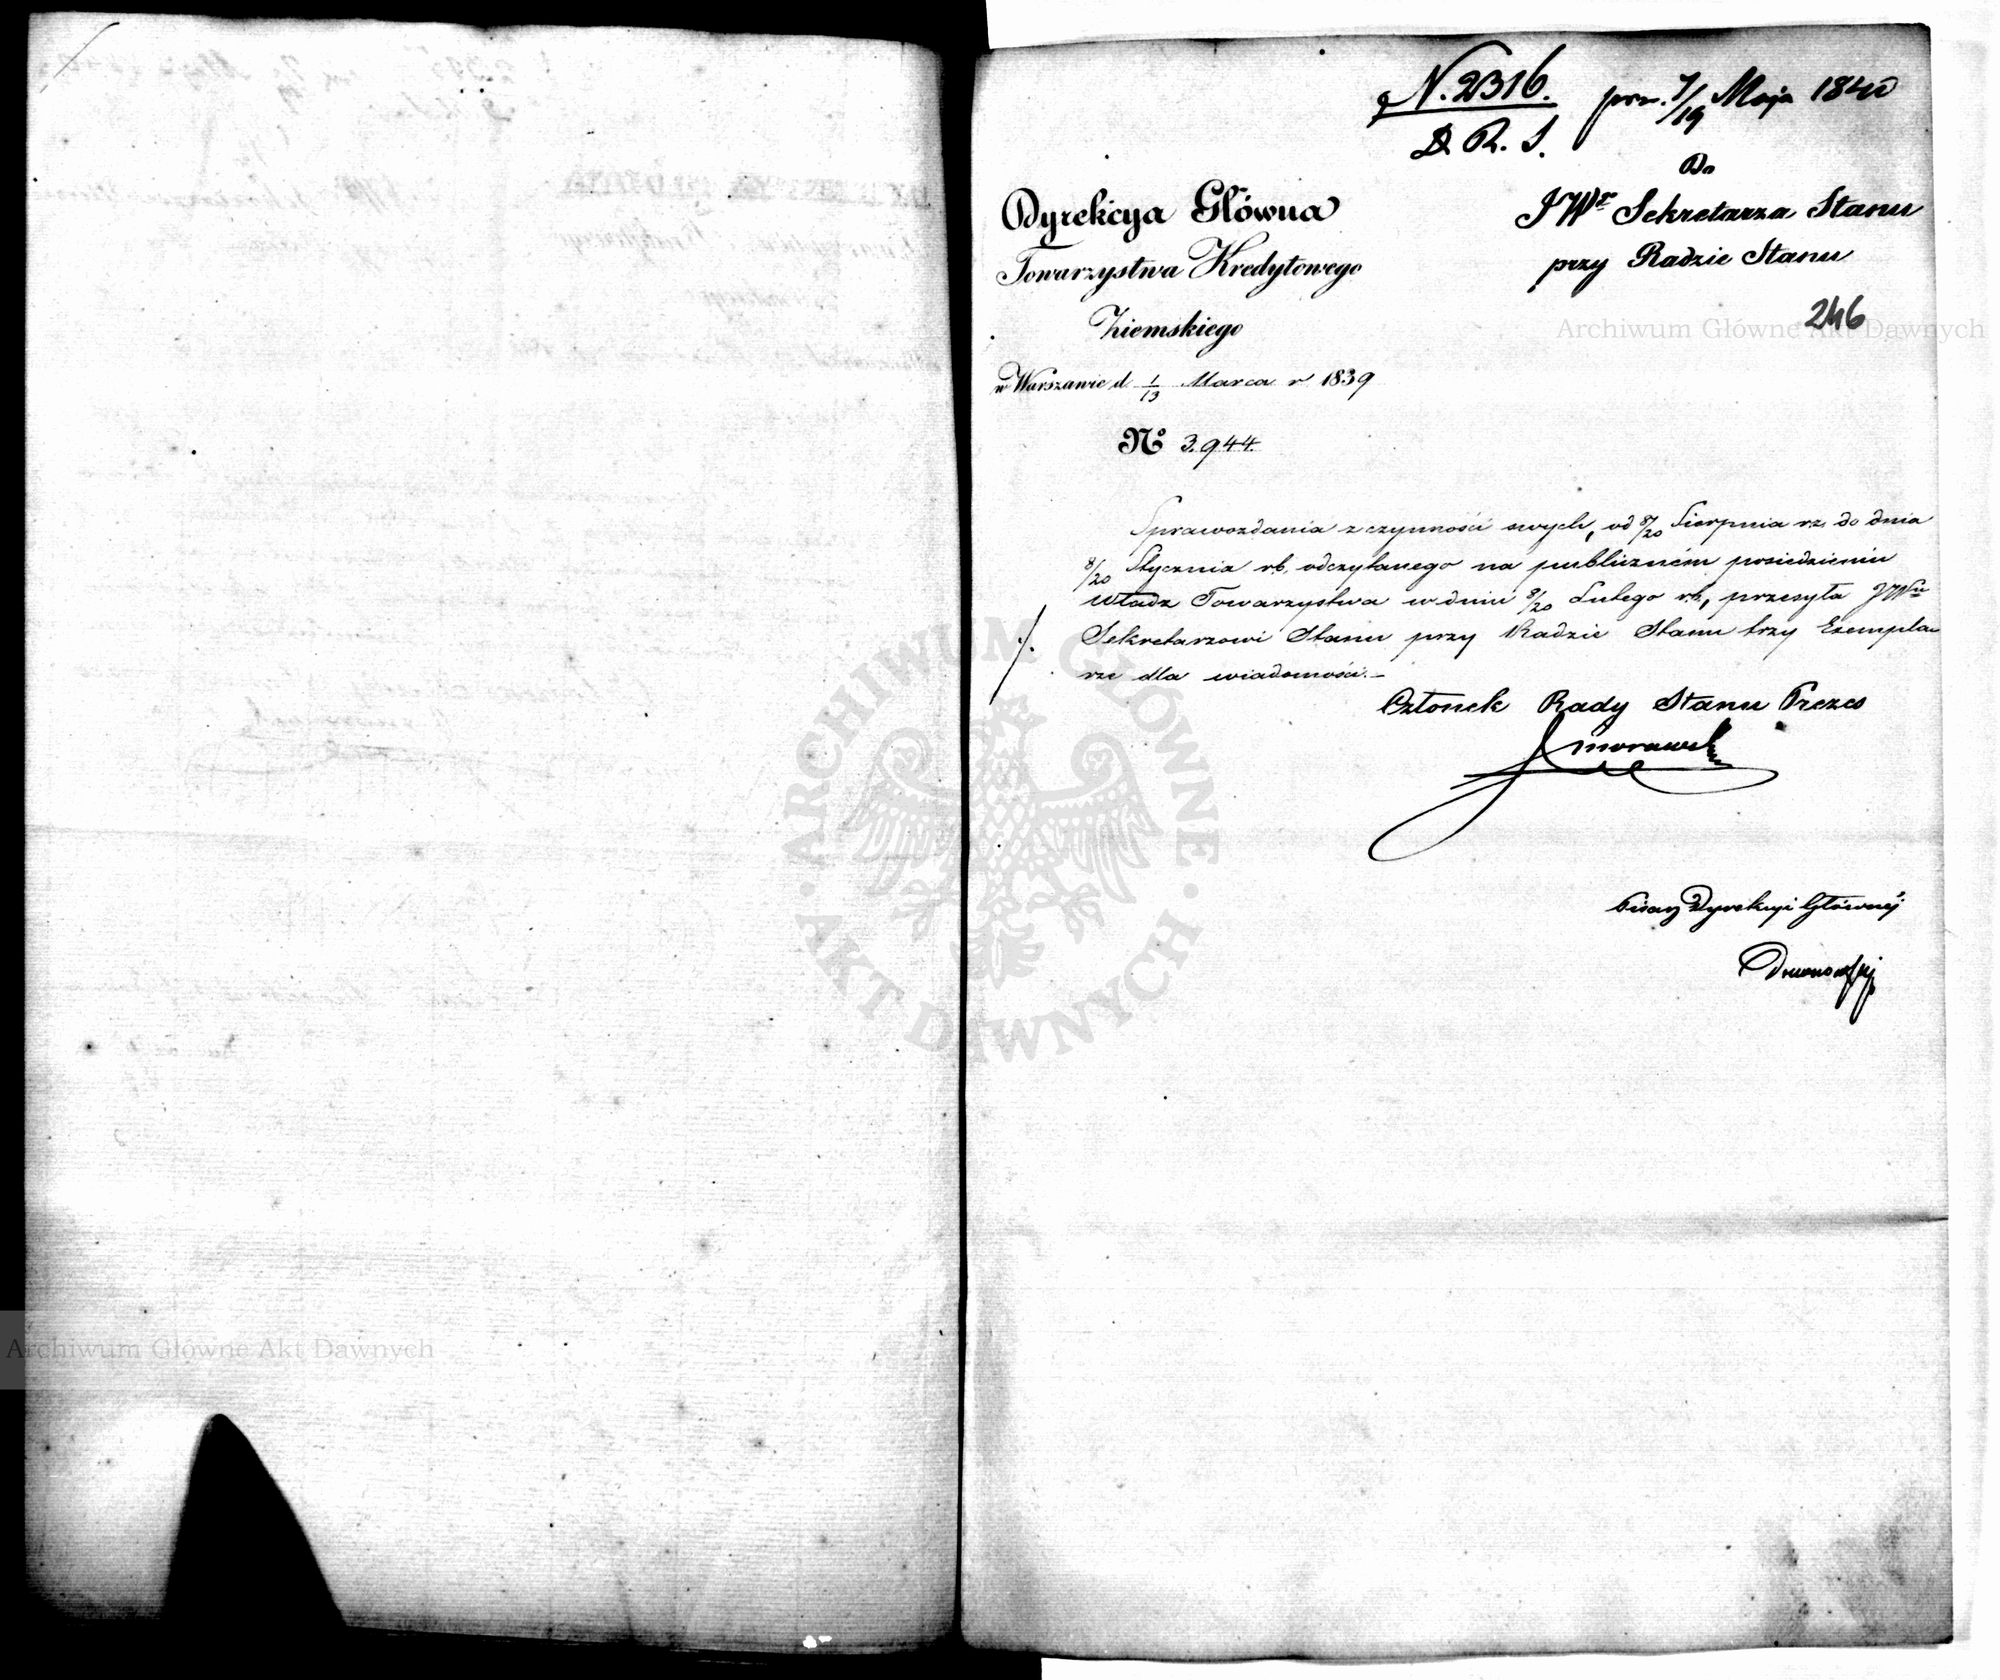 N. 2316.
D. R. S.
prz. 7/19 Maja 1840
Do
JWo Sekretarza Stanu
przy Radzie Stanu
246
Dyrekcya Główna
Towarzystwa Kredytowego
Ziemskiego
w Warszawie d. 1/13 Marca r 1839
No 3,944.
Sprawozdania z czynności swych, od 8/20 Sierpnia rz. do dnia
8/20 Stycznia rb. odczytanego na publiczném posiedzeniu
Władz Towarzystwa w dniu 8/20 Lutego rb, przesyła JWu
Sekretarzowi Stanu przy Radzie Stanu trzy Exempla
rze dla wiadomości.–
Członek Rady Stanu Prezes
Morawski
Pisarz Dyrekcyi Głównéj
Drewnowski
Archiwum Główne Akt Dawnych
Archiwum Główne Akt Dawnych
ARCHIWUM GŁÓWNE AKT DAWNYCH